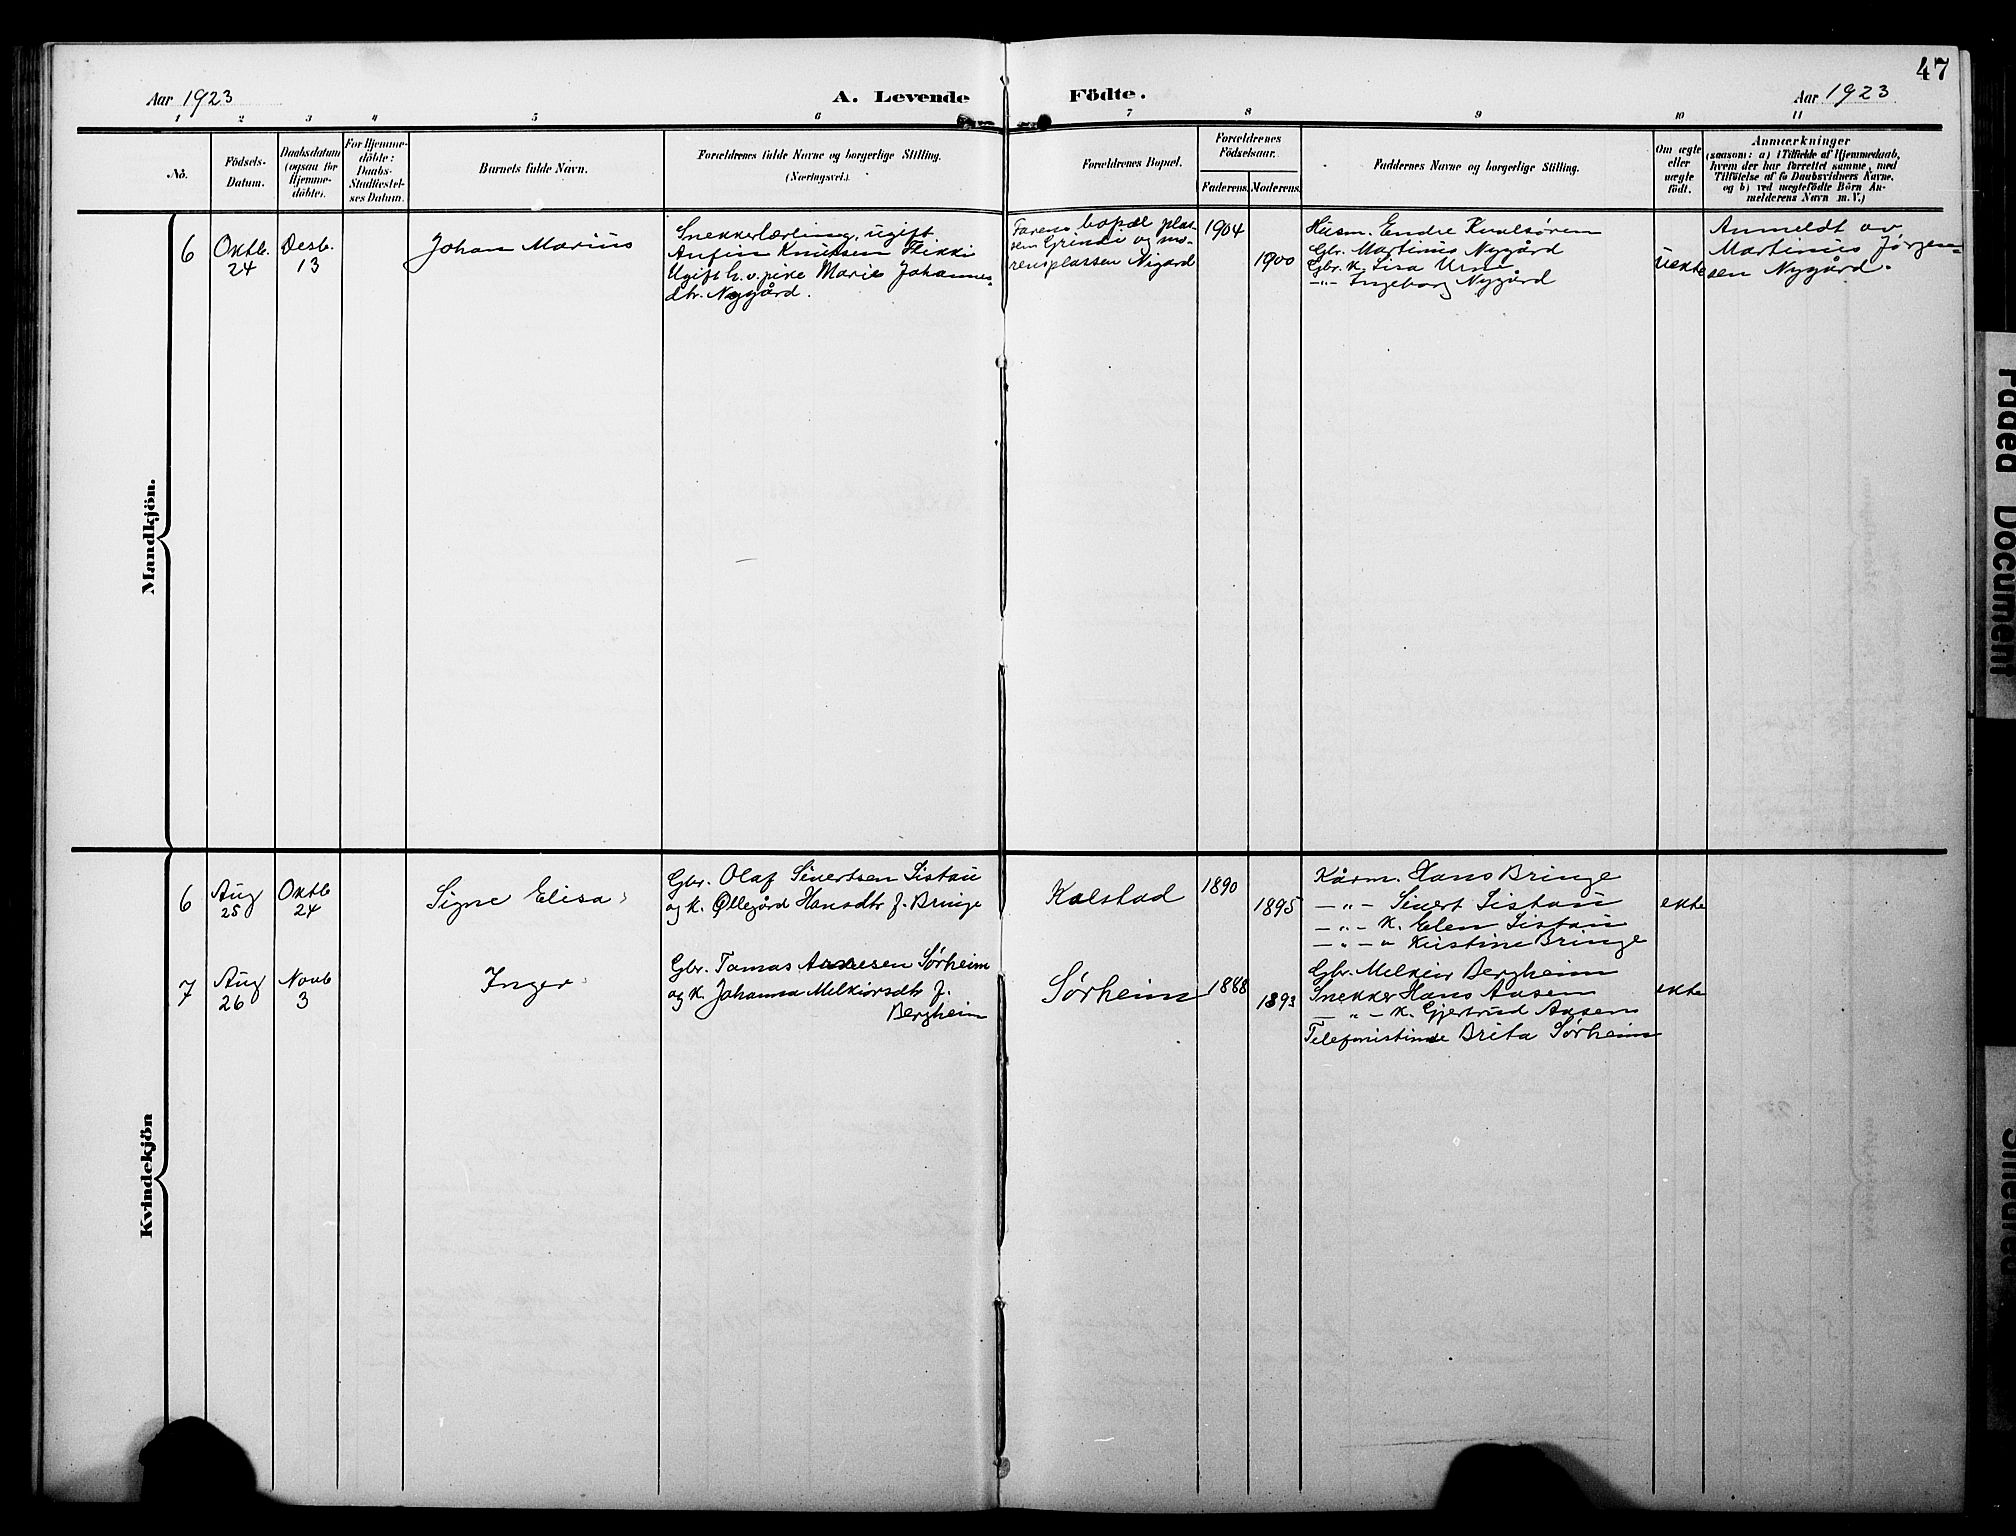 47
Aar 1923
A. Levende Födte.
Aar 1923
1 2 3 4 5 6 7 8 9 10 11
No.
Födsels-
Datum.
Daabsdatum
(ogsaa for
Hjemme-
döbte).
For Hjemme-
döbte:
Daabs-
Stadfæstel-
ses Datum.
Barnets fulde Navn.
Forældrenes fulde Navne og borgerlige Stilling.
(Næringsvei.)
Forældrenes Bopæl.
Forældrenes
Födselsaar.
Faderens. Moderens.
Faddernes Navne og borgerlige Stilling.
Om ægte
eller
uægte
födt.
Anmærkninger
(saasom: a) i Tilfælde af Hjemmedaab,
hvem der har forrettet samme, med
Tilföielse af to Daabsvidners Navne,
og b) ved uægtefödte Börn An-
melderens Navn m. V.)
Mandkjön.
6
Oktb.
24
Desb.
13
Johan Marius
Snekkerlærling, ugift
Anfin Knutsen Flikki
Ugift h. v. pike Marie Johannes-
dtr. Nygård.
Farens bopæl plas-
sen Grinde og mo-
rens plassen Nigard
1904
1900
Husm. Endre
Gbr. Martinus Nygård
Gbr. k. Lisa
-"- Ingeborg Nygård
uekte
Anmeldt av
Martinus Jørgen-
sen Nygård.
Kvindekjön
6
Aug
25
Oktb
24
Signe Elisa
Gbr. Olaf Sivertsen Listau
og k. Øllegård Hansdtr f. Bringe
Kalstad
1890
1895
Kårm. Hans Bringe
-"- Sivert Listau
-"- k. Elen Listau
-"- " Kristine Bringe
ekte
7
Aug
26
Novb
3
Inger
Gbr. Tomas Sørheim
og k. Johanna Melkiorsdtr f.
Bergheim
Sørheim
1888
1893
Gbr. Melkior Bergheim
Snekker Hans Aasen
-"- k. Gjertrud Aasen
Telefonistinde Brita Sørheim
ekte
Faded Document